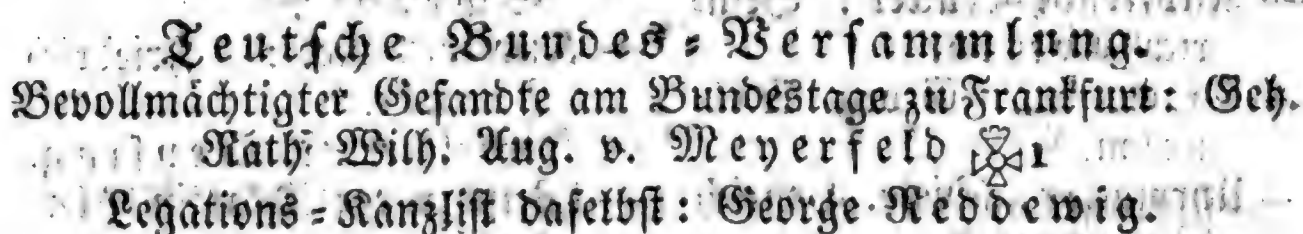 Teutsche Bundes-Versammlung.
Bevollmächtigter Gesandte am Bundestage zu Frankfurt: Geh.
Rath Wilh. Aug. v. Meyerfeld 1
Legations-Kanzlist daselbst: George Reddewig.